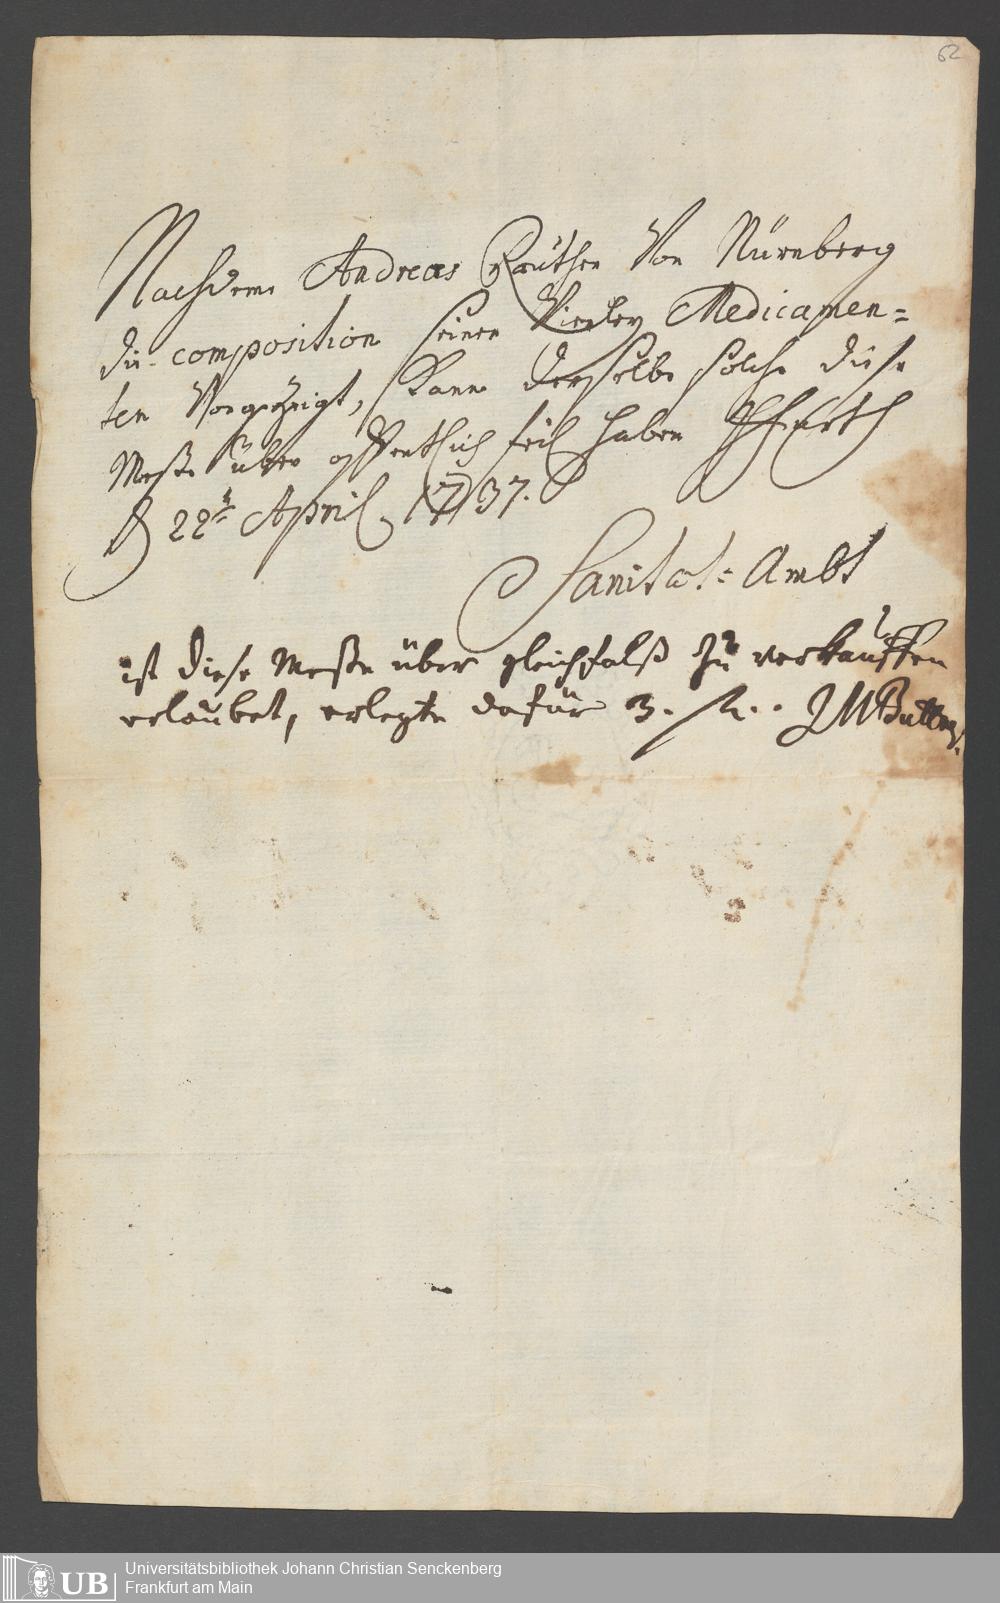 62
Nachdeme Andreas Rauther Von Nürnberg
die composition seiner Medicamen=
ten Vorgezeigt, Kann derselbe solche diese
Meße über öffentlich feil haben
d 22t April 1737.
Sanitat: Ambt
ist diese Meße über gleichfalß zu verkauffen
erlaubet, erlegte dafür 3. fl.
Universitätsbibliothek Johann Christian Senckenberg
Frankfurt am Main
UB